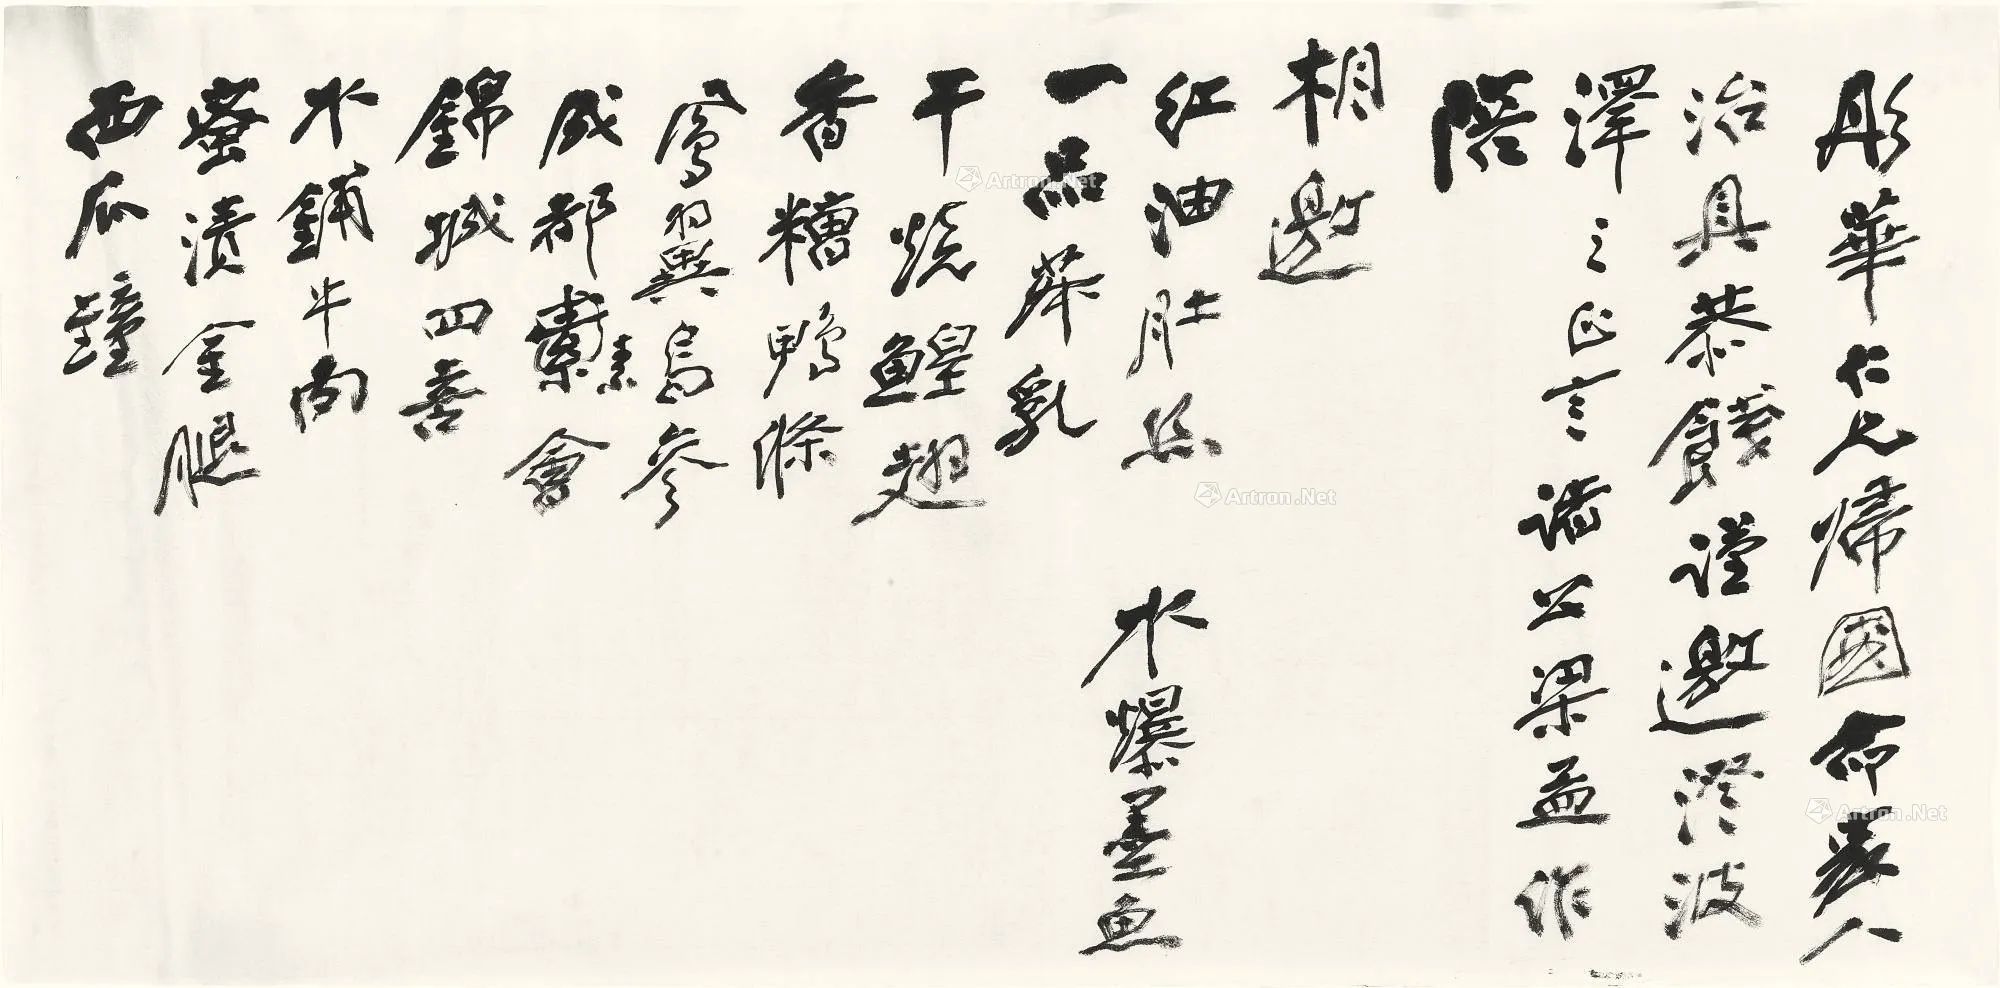 彤華仁兄歸國命家人
治具恭餞謹邀澄波
澤之正言諸公梁孟作
陪
相邀
紅油肚絲 水爆墨魚
一品菜乳
干燒鰉翅
香糟鴨條
鳶翼烏參
成都素會
錦城四喜
水鋪牛肉
蜜漬金腿
西瓜鐘
Artron.Net
Artron.Net
Artron.Net